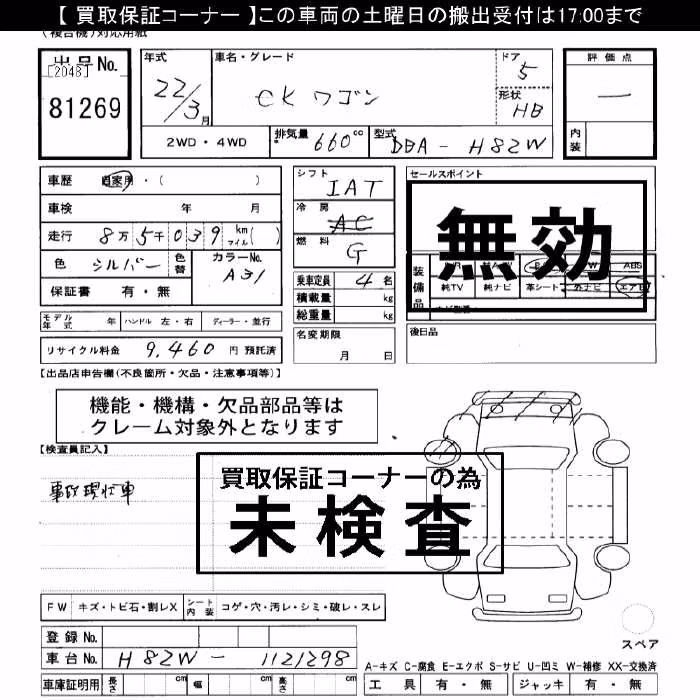 【 買取保証コーナー 】この車両の土曜日の搬出受付は17:00まで
(複合機)対応用紙
出品No.
[2048]
81269
年式
22/3月
車名・グレード
eKワゴン
ドア
5
形状
HB
評価点
一
内装
2WD・4WD
排気量 660 cc
型式 DBA - H82W
車歴 自家用・( )
車検 年 月
走行 8万5千039 km マイル( )
色 シルバー 色替
カラーNo. A31
保証書 有・無
シフト
IAT
冷房
AC
燃料
G
乗車定員 4名
積載量 kg
総重量 kg
名変期限
月 日
セールスポイント
無効
装備品
ABS
純TV 純ナビ 革シート 外ナビ エアB
後日品
モデル年式 年 ハンドル 左・右 ディーラー・並行
リサイクル料金 9,460 円 預託済
【出品店申告欄(不良箇所・欠品・注意事項等)】
機能・機構・欠品部品等は
クレーム対象外となります
【検査員記入】
事故現状車
買取保証コーナーの為
未検査
FW キズ・トビ石・割レX シート内装 コゲ・穴・汚レ・シミ・破レ・スレ
登録No.
車台No. H82W - 1121298
車庫証明用 長さ cm 幅 cm 高さ cm
スペア
A-キズ C-腐食 E-エクボ S-サビ U-凹ミ W-補修 XX-交換済
工具 有・無 ジャッキ 有・無